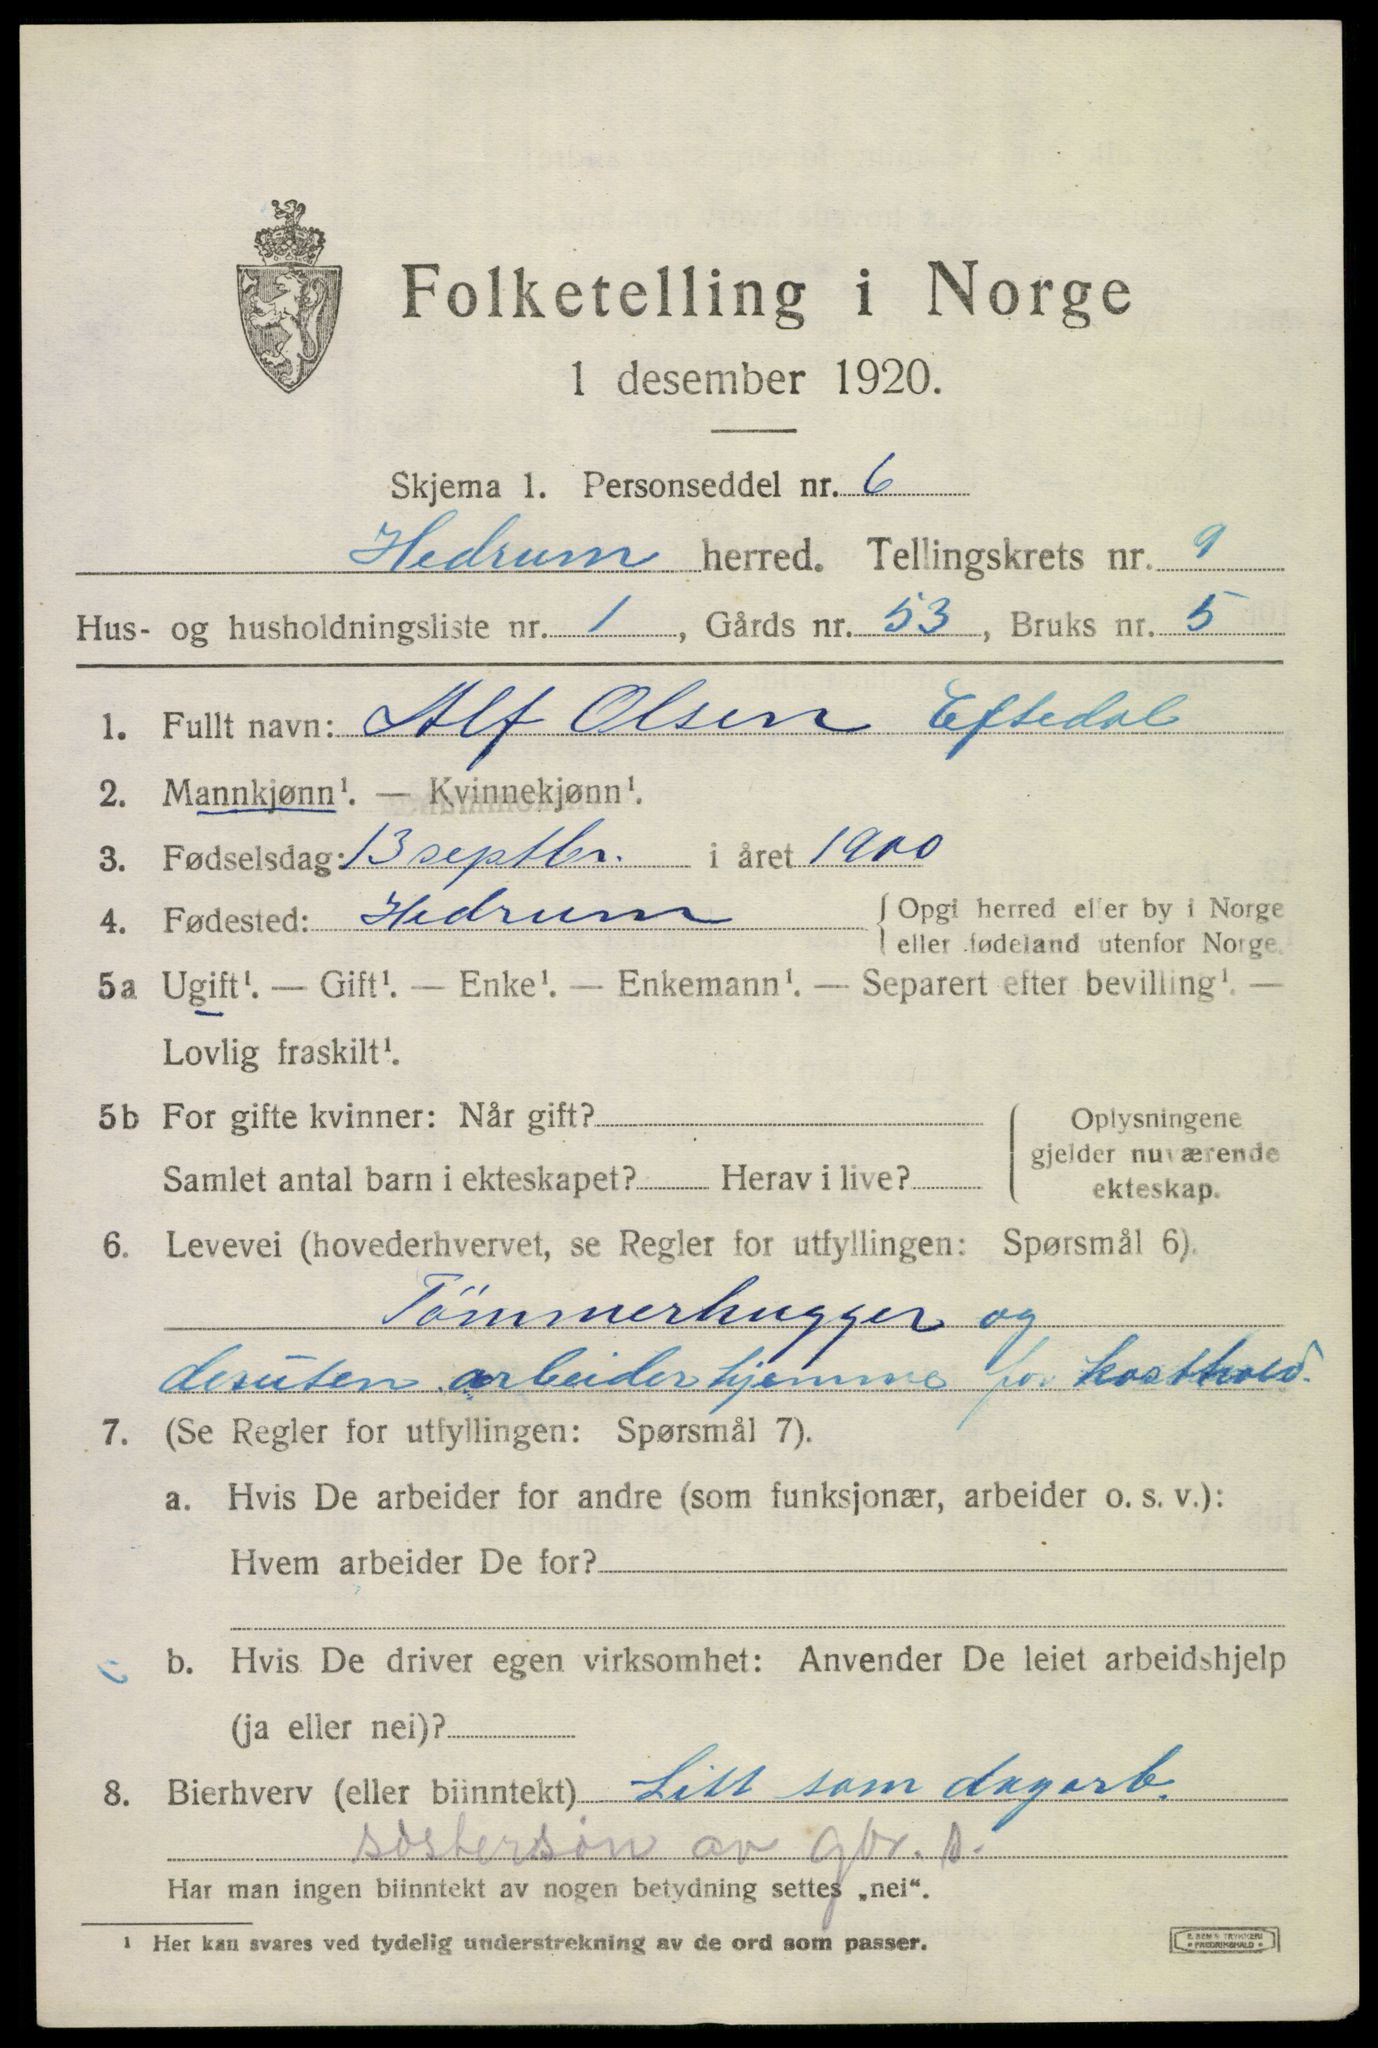 Folketelling i Norge
1 desember 1920.
Skjema 1. Personseddel nr. 6
Hedrum herred. Tellingskrets nr. 9
Hus- og husholdningsliste nr. 1, Gårds nr. 53, Bruks nr. 5
1. Fullt navn: Alf Olsen Eftedal
2. Mannkjønn¹. — Kvinnekjønn¹.
3. Fødselsdag: 13 septbr. i året 1900
4. Fødested: Hedrum { Opgi herred eller by i Norge
eller fødeland utenfor Norge.
5a Ugift¹. — Gift¹. — Enke¹. — Enkemann¹. — Separert efter bevilling¹. —
Lovlig fraskilt¹.
5b For gifte kvinner: Når gift? Oplysningene
gjelder nuværende
Samlet antal barn i ekteskapet? Herav i live? ekteskap.
6. Levevei (hovederhvervet, se Regler for utfyllingen: Spørsmål 6).
Tömmerhugger og
desuten arbeider hjemme for kosthold.
7. (Se Regler for utfyllingen: Spørsmål 7).
a. Hvis De arbeider for andre (som funksjonær, arbeider o. s. v.):
Hvem arbeider De for?
b. Hvis De driver egen virksomhet: Anvender De leiet arbeidshjelp
(ja eller nei)?
8. Bierhverv (eller biinntekt) Litt som dagarb.
søstersøn av gbr. s.
Har man ingen biinntekt av nogen betydning settes „nei".
¹ Her kan svares ved tydelig understrekning av de ord som passer.
E. SEM'S TRYKKERI
• FREDRIKSHALD •